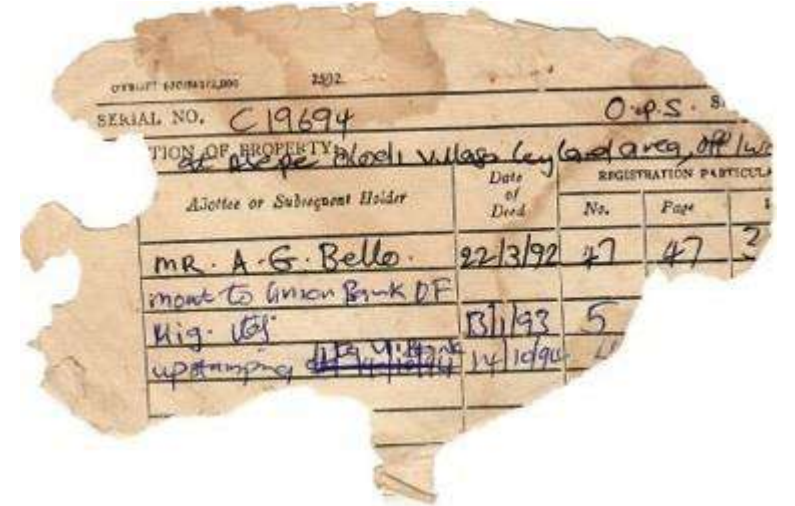 2502
SERIAL NO. C19694 O.P.S. S
TION OF PROPERTY: at Village Leyland area, off
Allottee or Subsequent Holder Date of Deed REGISTRATION PARTICULA
No. Page
MR. A. G. Bello. 22/3/92 47 47
mort to Union Bank OF
Nig. 13/1/93 5
upstamping 14/10/94